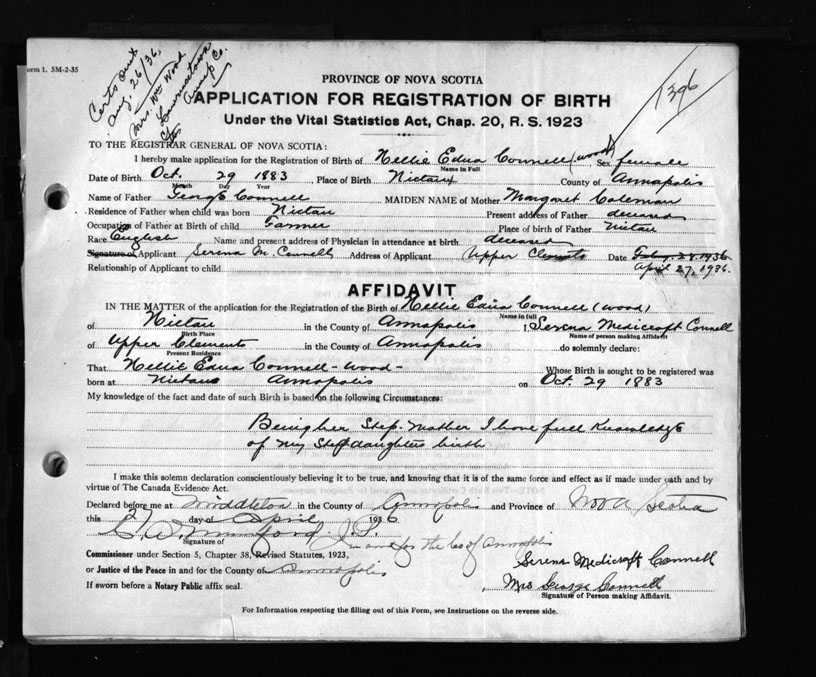 orm 1. 5M-2-35
Certs out
Aug. 26/36,
Mrs. Wm Wood
Lawrencetown
Annap Co.
1396
PROVINCE OF NOVA SCOTIA
APPLICATION FOR REGISTRATION OF BIRTH
Under the Vital Statistics Act, Chap. 20, R. S. 1923
TO THE REGISTRAR GENERAL OF NOVA SCOTIA:
I hereby make application for the Registration of Birth of Nellie Edna Connell (Wood) Sex female
Name in Full
Date of Birth Oct. 29 1883 Place of Birth Nictaux County of Annapolis
Month Day Year
Name of Father George Connell MAIDEN NAME of Mother Margaret Coleman
Residence of Father when child was born Nictau Present address of Father deceased
Occupation of Father at Birth of child Farmer Place of birth of Father Nictau
Race English Name and present address of Physician in attendance at birth deceased
Signature of Applicant Serena M. Connell Address of Applicant Upper Clements Date Feby. 28 1936
Relationship of Applicant to child April 27, 1936.
AFFIDAVIT
IN THE MATTER of the application for the Registration of the Birth of Nellie Edna Connell (Wood)
Name in full
of Nictau in the County of Annapolis I, Serena Medicraft Connell
Birth Place Name of person making Affidavit
of Upper Clements in the County of Annapolis do solemnly declare:
Present Residence
That Nellie Edna Connell - Wood - Whose Birth is sought to be registered was
born at Nictaus Annapolis on Oct. 29 1883
My knowledge of the fact and date of such Birth is based on the following Circumstances:
Being her Step-Mother I have full Knowledge
of my Step daughters birth
I make this solemn declaration conscientiously believing it to be true, and knowing that it is of the same force and effect as if made under oath and by
virtue of The Canada Evidence Act.
Declared before me at Middleton in the County of Annapolis and Province of Nova Scotia
this 27 day of April 1936
J.P.
Signature of in and for the Co of Annapolis
Commissioner under Section 5, Chapter 38, Revised Statutes, 1923,
Serena Medicraft Connell
or Justice of the Peace in and for the County of Annapolis
Mrs George Connell
If sworn before a Notary Public affix seal.
Signature of Person making Affidavit.
For Information respecting the filling out of this Form, see Instructions on the reverse side.